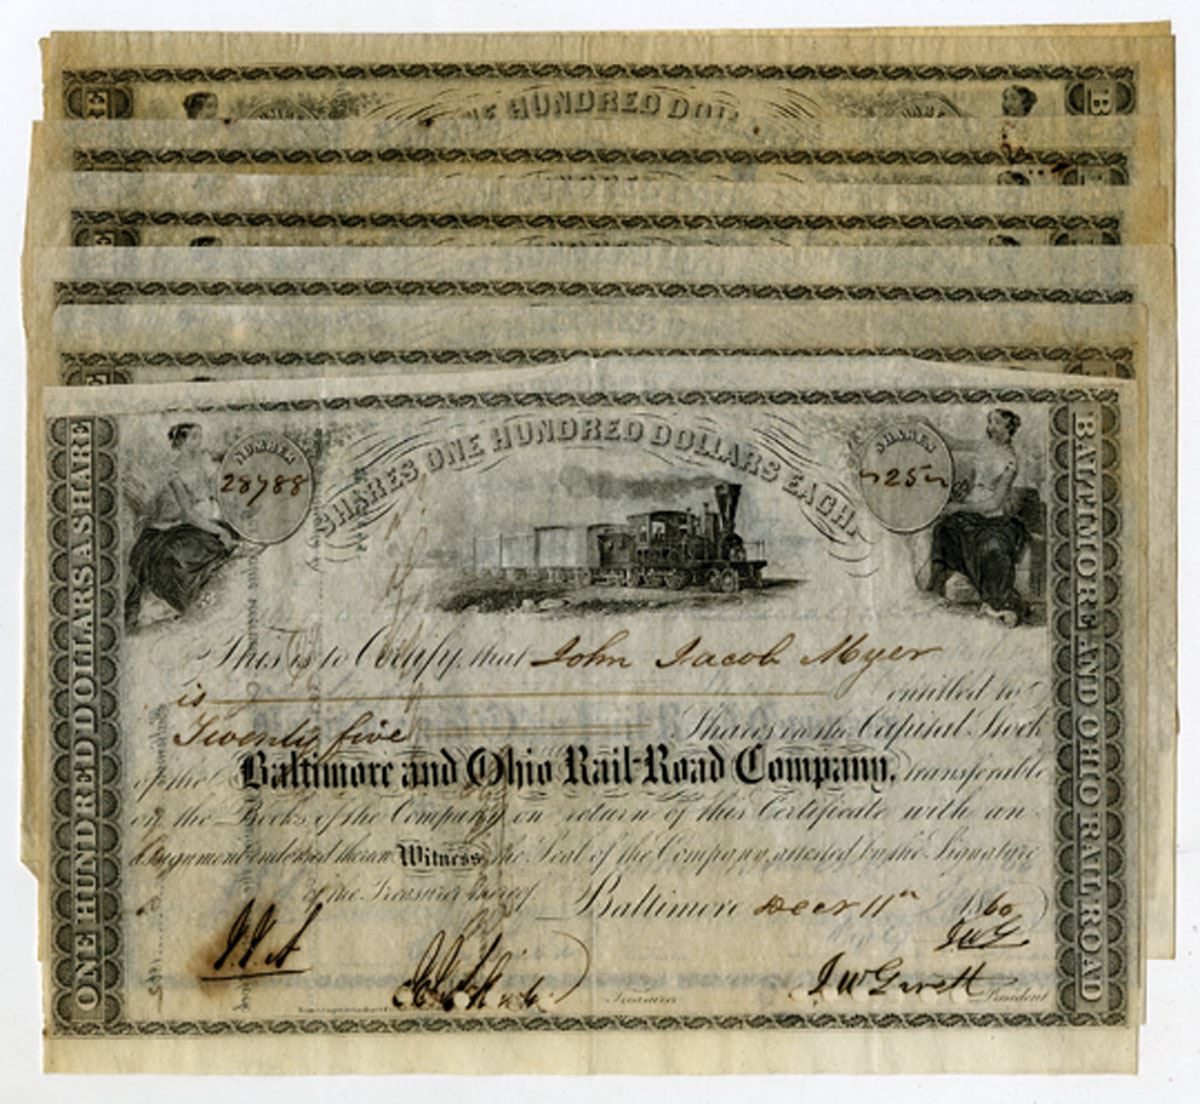 ONE HUNDRED DOLLARS
SHARES ONE HUNDRED DOLLARS EACH.
NUMBER
28788
SHARES
25
This is to Certify, that John Jacob Myer
is entitled to
Twenty five Shares in the Capital Stock
of the Baltimore and Ohio Rail-Road Company, transferable
on the Books of the Company on return of this Certificate with an
assignment endorsed thereon Witness the Seal of the Company attested by the Signature
of the Treasurer thereof. Baltimore Decr 11th 1860
J.W.G.
J.J.A
J W Garrett
Treasurer
President
ONE HUNDRED DOLLARS A SHARE
BALTIMORE AND OHIO RAIL ROAD